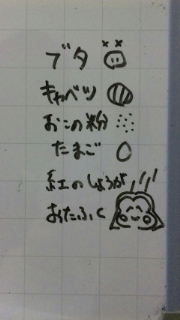 ブタ
キャベツ
おこの粉
たまご
紅のしょうが
おたふく